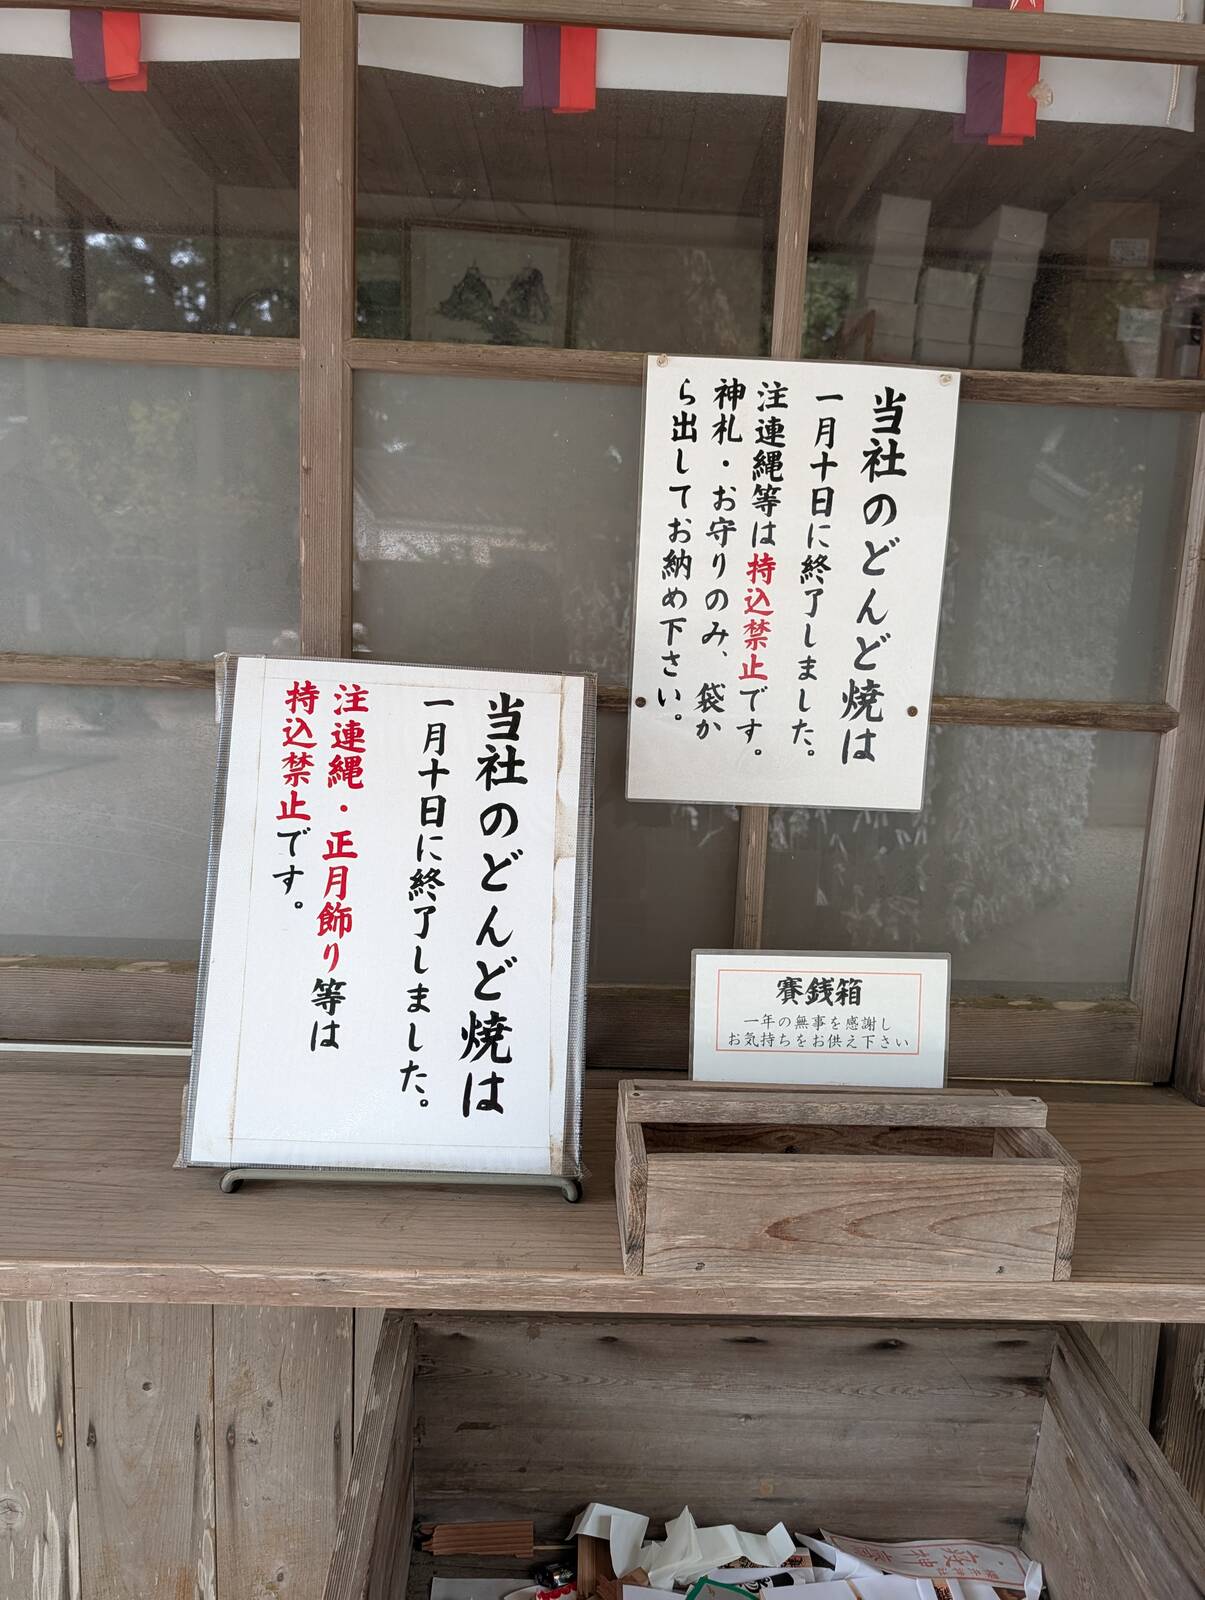 当社のどんど焼は
一月十日に終了しました。
注連縄等は持込禁止です。
神札・お守りのみ、袋か
ら出してお納め下さい。
当社のどんど焼は
一月十日に終了しました。
注連縄・正月飾り等は
持込禁止です。
賽銭箱
一年の無事を感謝し
お気持ちをお供え下さい